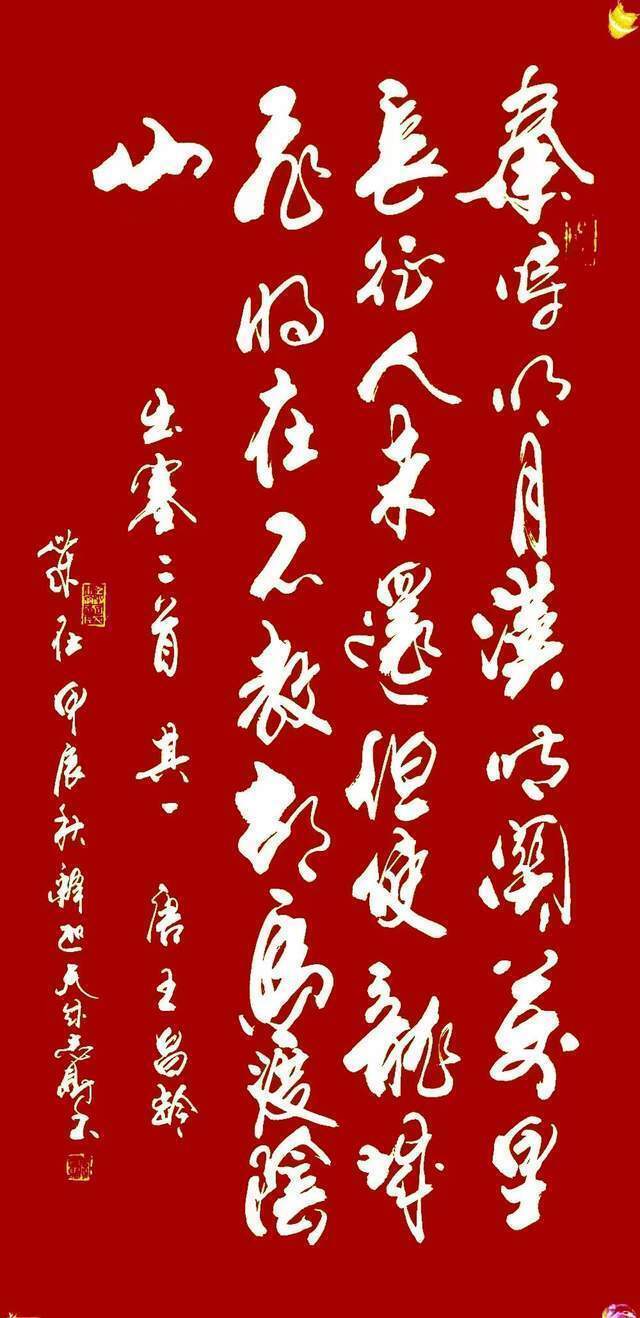 秦時明月漢時關萬里
長征人未還但使龍城
飛將在不教胡馬渡陰
山
出塞二首 其一 唐王昌齡
甲辰秋韓